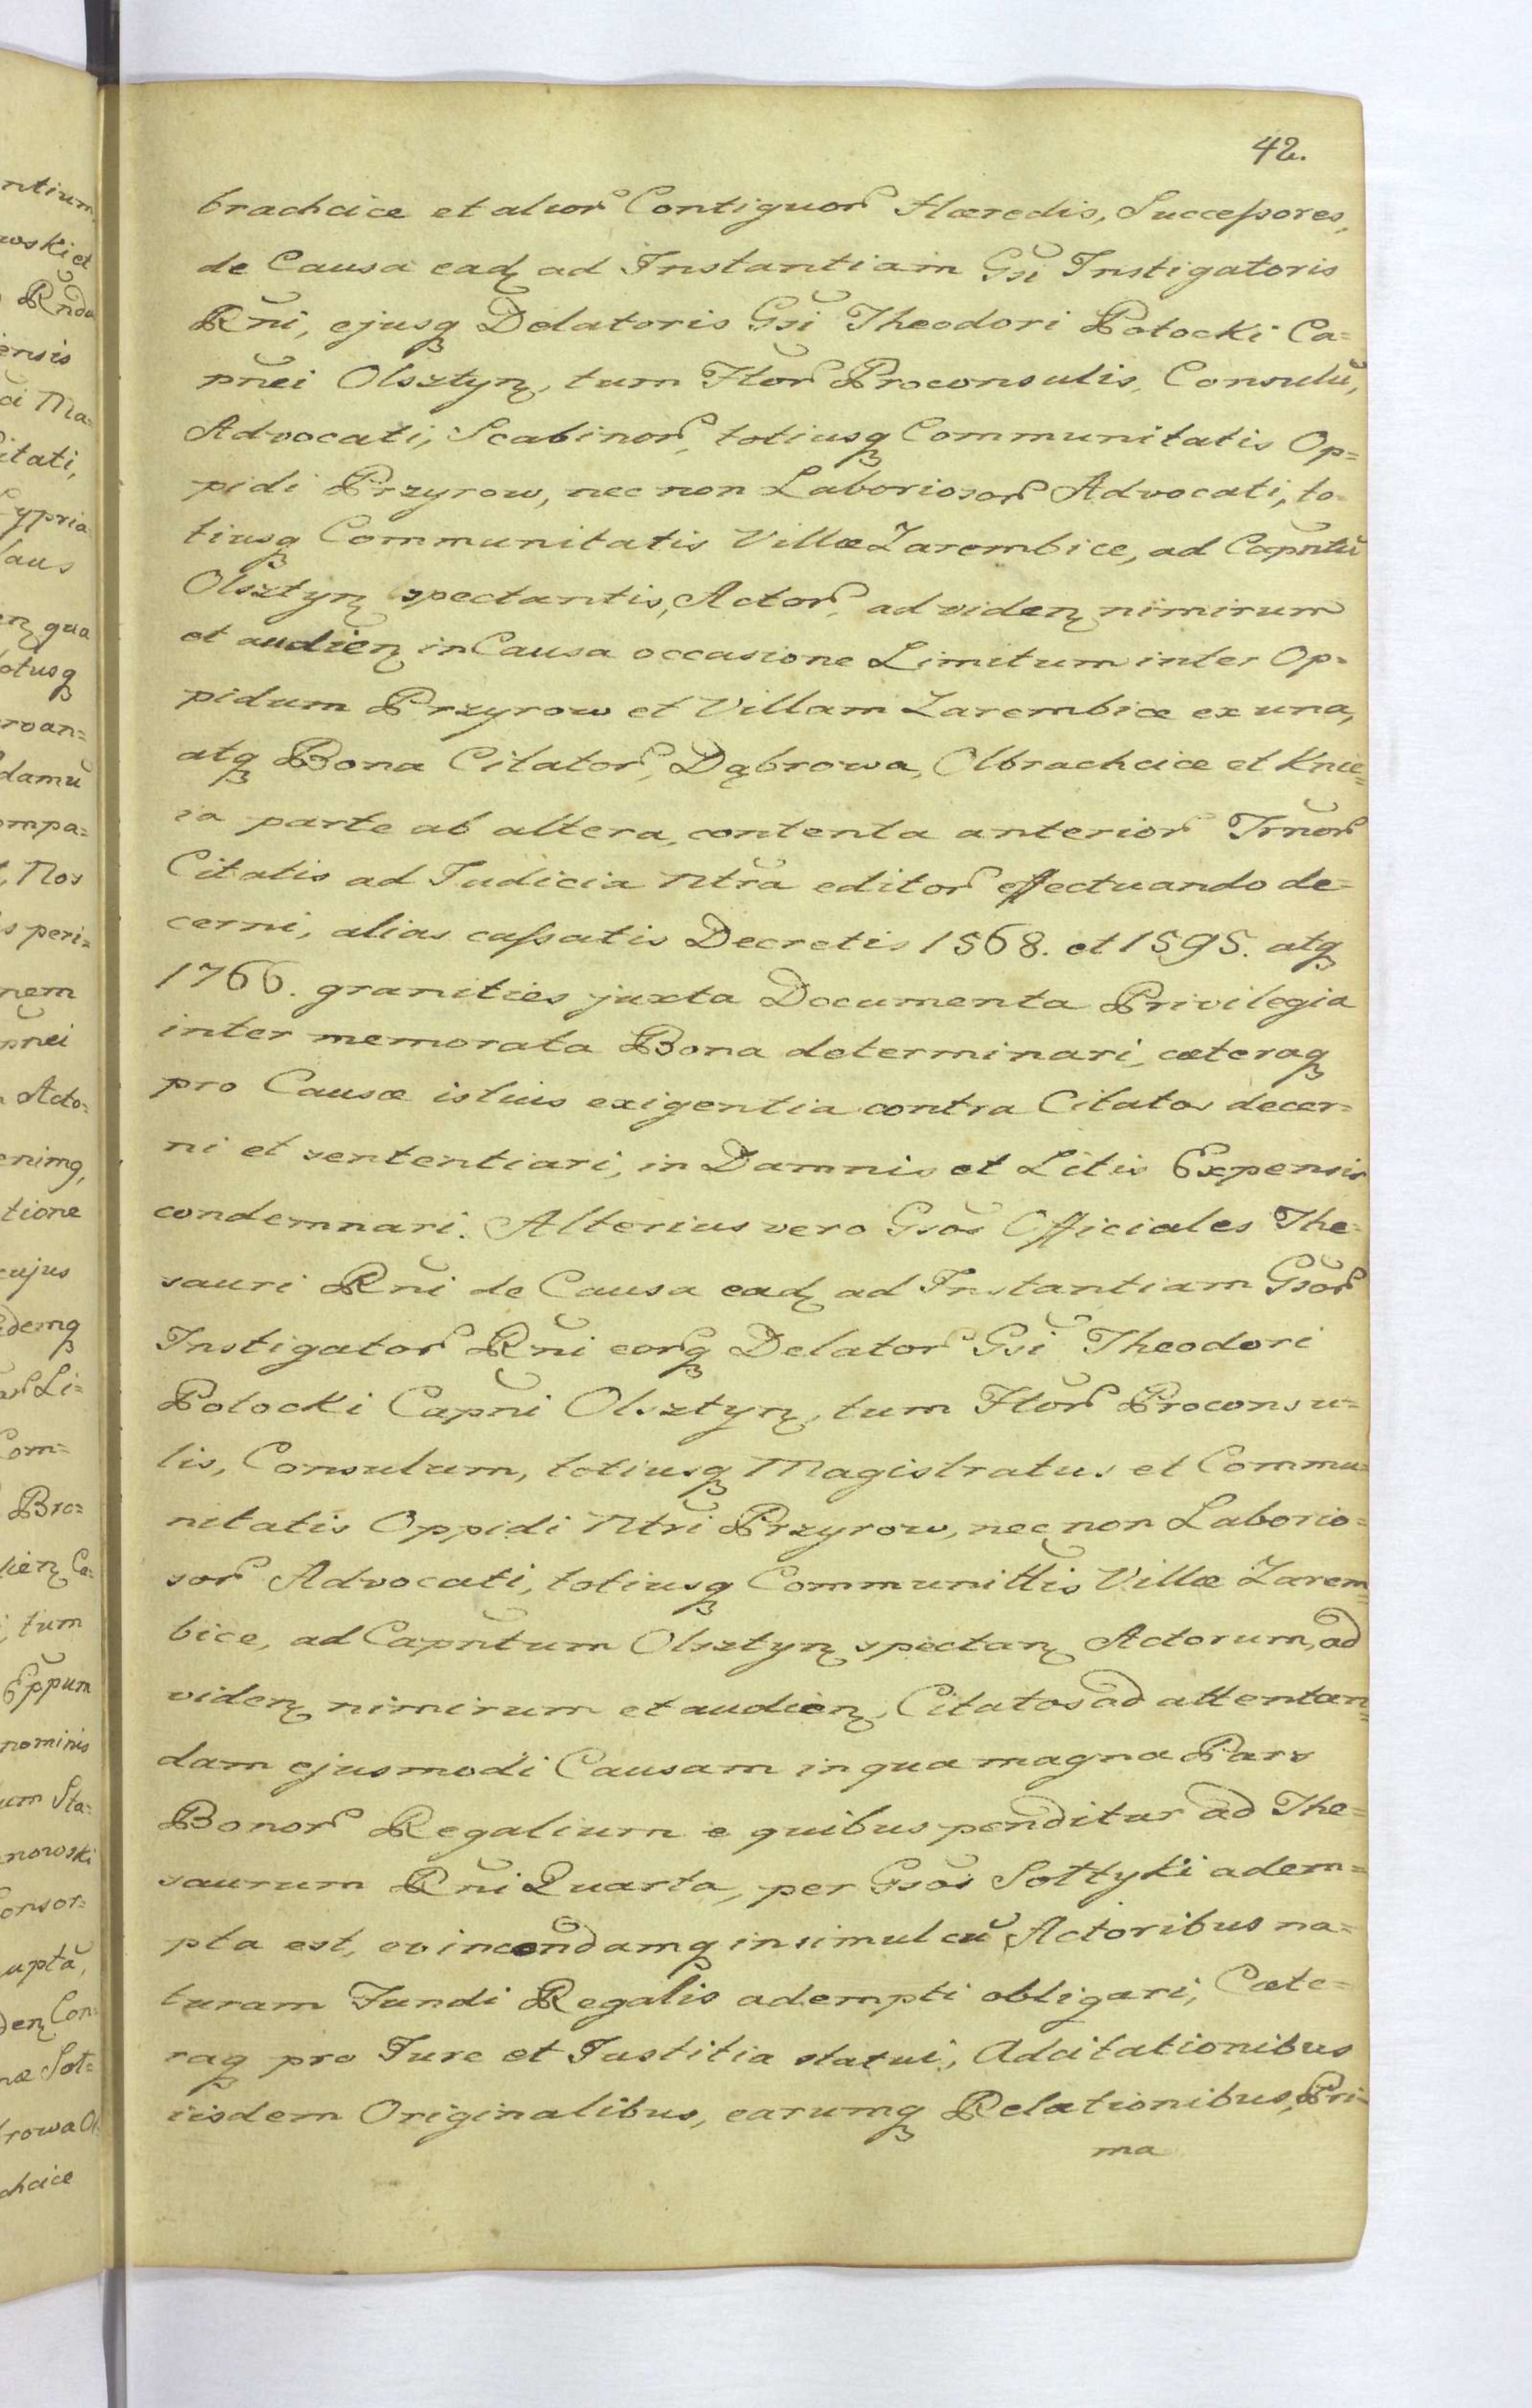 42.
brachcice et alior Contiguor Hæredis, Successores,
de Causa ead ad Instantiam Gsi Instigatoris
Rni, ejusq Delatoris Gsi Theodori Potocki Ca=
pnei Olsztyn, tum Htor Proconsulis, Consulũ,
Advocati, Scabinor, totiusq Communitatis Op=
pidi Przyrow, nec non Laboriosor Advocati, to-
tiusq Communitatis Villæ Zarembice, ad Capntũ
Olsztyn spectantis, Actor, ad viden nimirum
et audien in Causa occasione Limitum inter Op=
pidum Przyrow et Villam Zarembice ex una,
atq Bona Citator, Dąbrowa, Olbrachcice et Knie=
ia parte ab altera, contenta anterior Trnor
Citatis ad Judicia Ntra editor effectuando de=
cerni, alias cassatis Decretis 1568. et 1595. atq
1766. granities juxta Documenta Privilegia
inter memorata Bona determinari, cæteraq
pro Causæ istius exigentia contra Citatos decer=
ni et sententiari, in Damnis et Litis Expensis
condemnari. Alterius vero Gsos Officiales The=
sauri Rni de Causa ead ad Instantiam Gsor
Instigator Rni eorq Delator Gsi Theodori
Potocki Capni Olsztyn, tum Htor Proconsu=
lis, Consulum, totiusq Magistratus et Commu=
nitatis Oppidi Ntri Przyrow, nec non Laborio=
sor Advocati, totiusq Communittis Villæ Zarem=
bice, ad Capntum Olsztyn spectan Actorum, ad
viden nimirum et audien, Citatos ad attentan=
dam ejusmodi Causam in qua magna Pars
Bonor Regalium e quibus penditur ad The=
saurum Rni Quarta, per Gsos Sołtyki adem=
pta est, evincendamq insimul cũ Actoribus na=
turam Fundi Regalis adempti obligari, Cæte=
raq pro Jure et Justitia statui, Adcitationibus
iisdem Originalibus, earumq Relationibus, Pri=
ma